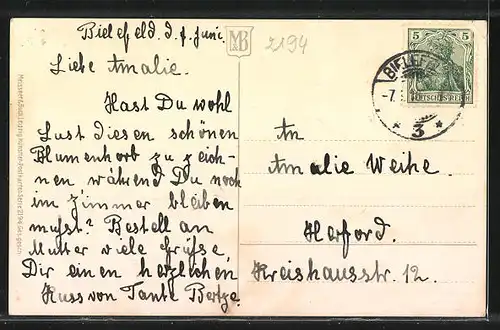 Bielefeld. d. 7. Juni.
2194
Liebe Amalie.
Hast Du wohl
Lust diesen schönen
Blumenkorb zu zeich-
nen während Du noch
im Zimmer bleiben
mußt? Bestell an
Mutter viele Grüße,
Dir einen herzlichen
Kuss von Tante
An
Amalie Weihe.
Herford.
Kreishausstr. 12.
5 5
DEUTSCHES REICH
BIELEFELD
-7.
* 3 *
MB
Meissner & Buch, Leipzig Künstler-Postkarten Serie 2194 Ges. gesch.